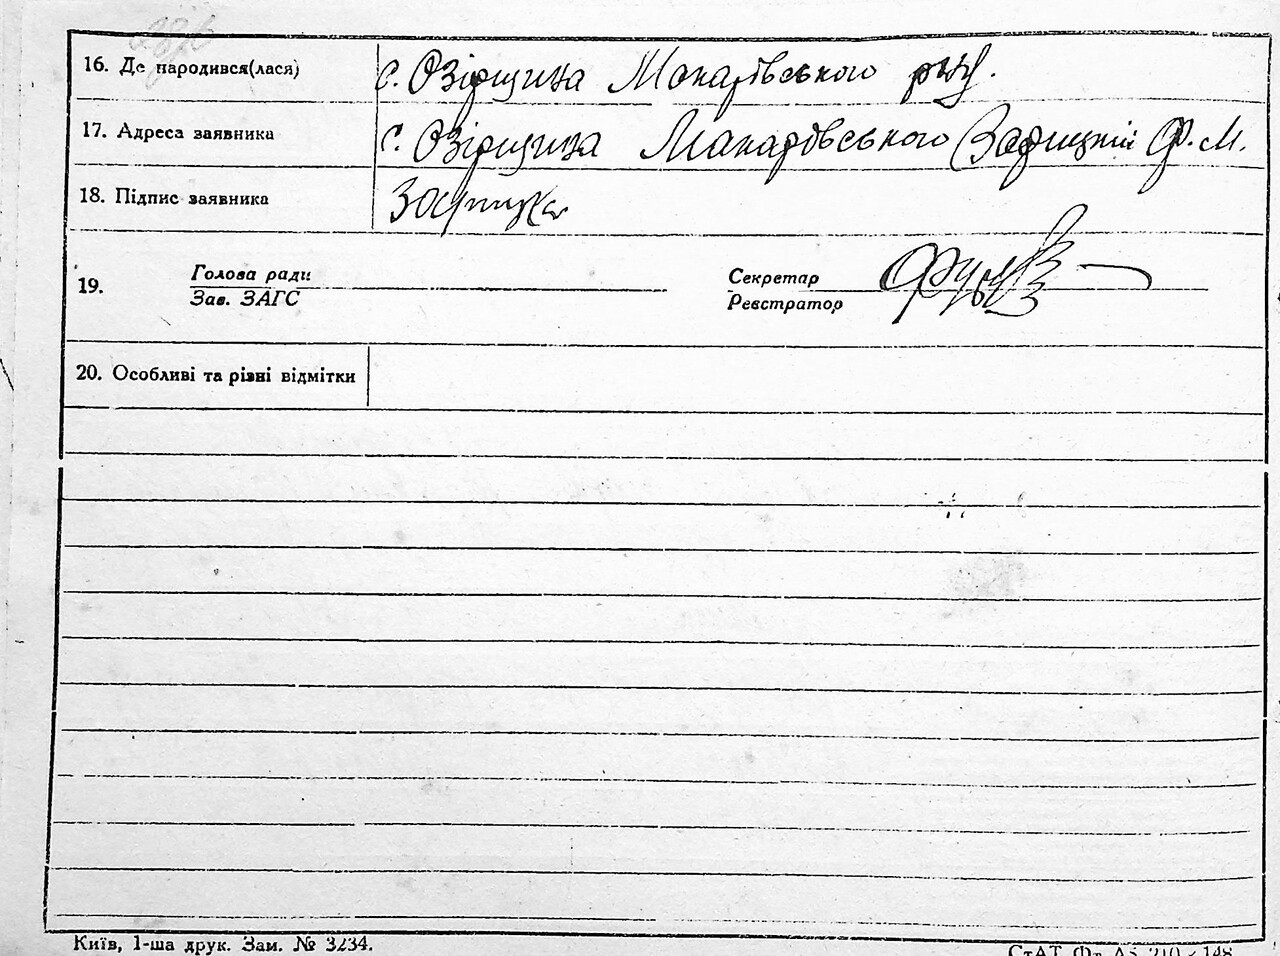 16. Де народився(лася) с. Озірщина Макарівського р-ну.
17. Адреса заявника с. Озірщина Макарівського Ф. М.
18. Підпис заявника
19. Голова ради Секретар
Зав. ЗАГС Реєстратор
20. Особливі та різні відмітки
Київ, 1-ша друк. Зам. № 3234.